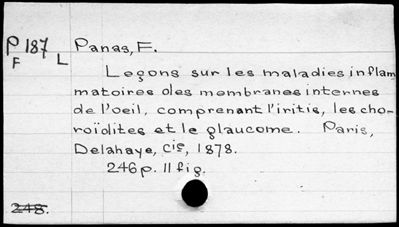 P 187 Panas, F.
F L
Leçons sur les maladies inflam
matoires des membranes internes
de l'oeil, comprenant l'iritis, les cho-
roïdites et le glaucome. Paris,
Delahaye, cie, 1878.
246 p. 11 fig.
248.